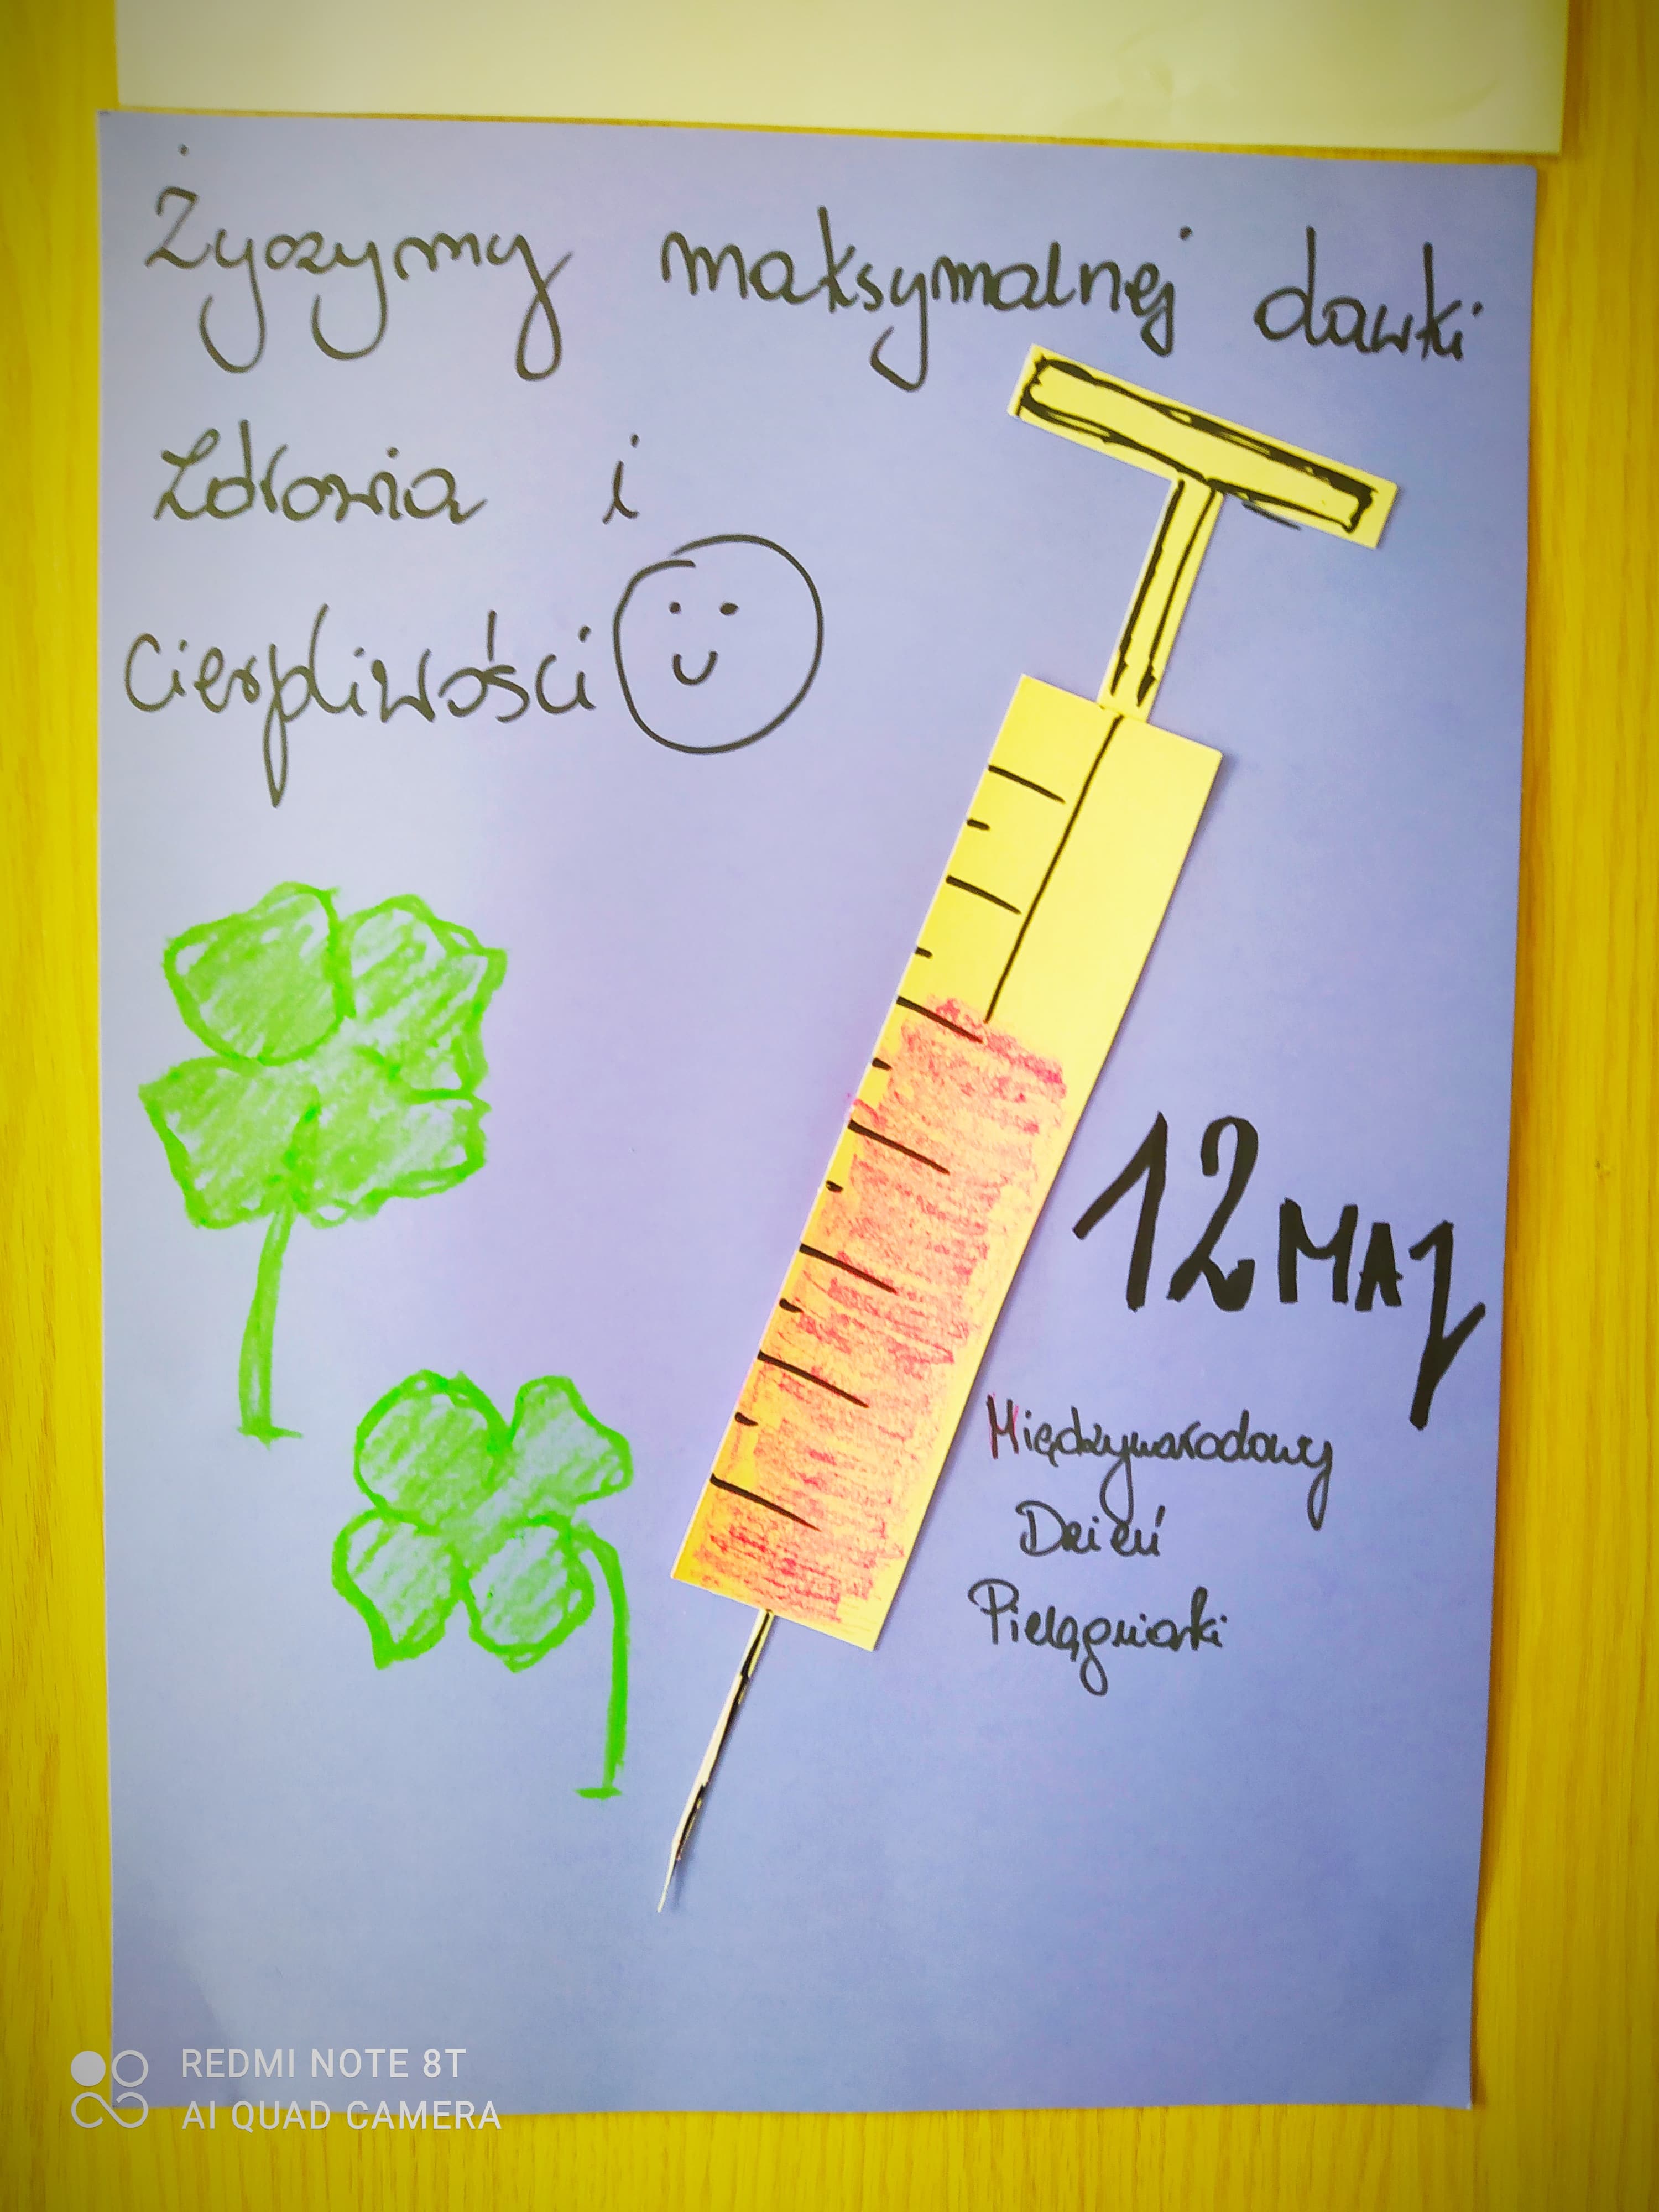 Życzymy maksymalnej dawki
zdrowia i
cierpliwości
12 MAJ
Międzynarodowy
Dzień
Pielęgniarki
REDMI NOTE 8T
AI QUAD CAMERA